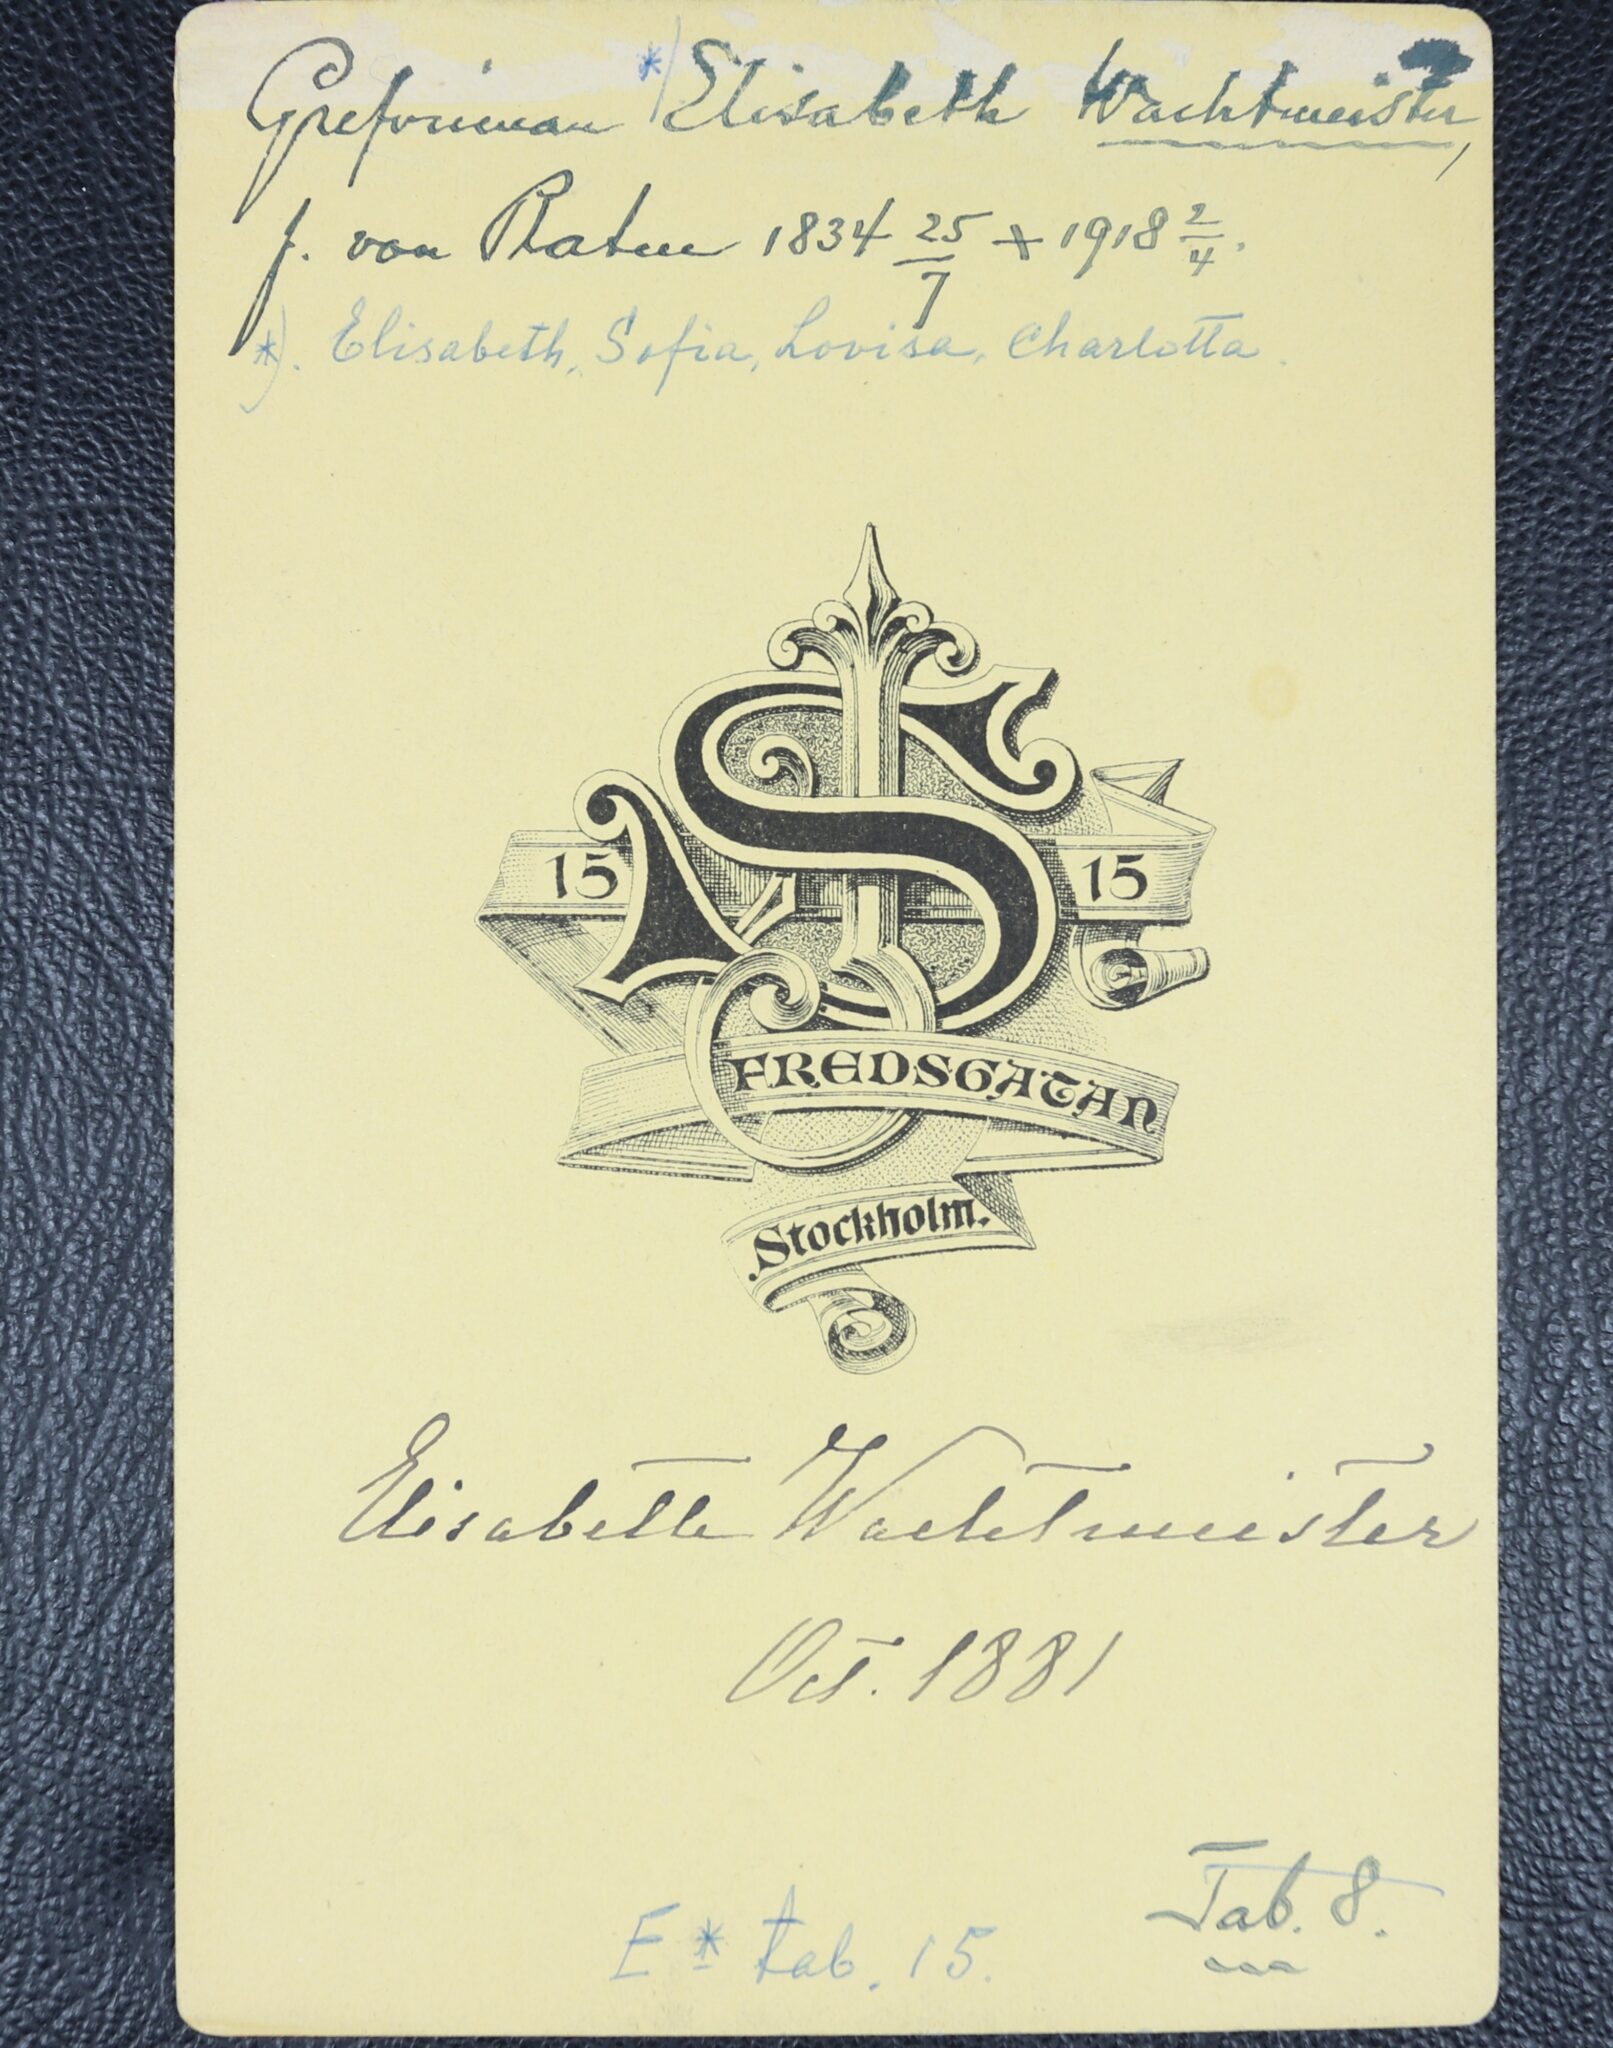 Grefvinnan *) Elisabeth Wachtmeister,
f. von Platen 1834 25/7 + 1918 2/4.
*). Elisabeth, Sofia, Lovisa, Charlotta.
S
15 15
FREDSGATAN
Stockholm.
Elisabeth Wachtmeister
Oct. 1881
Tab. 8.
E * tab. 15.